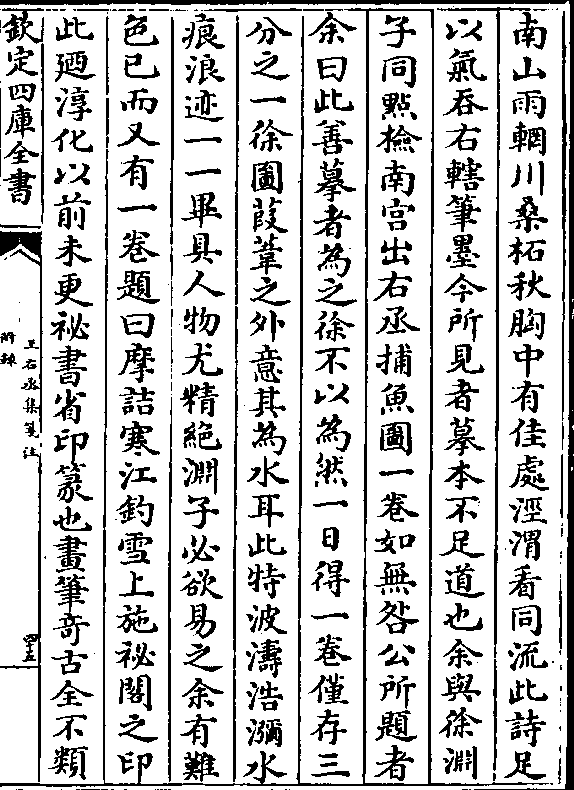 南山雨輞川桑柘秋胸中有佳處涇渭看同流此詩足
以氣吞右轄筆墨今所見者摹本不足道也余與徐淵
子同點檢南宫出右丞捕魚圖一卷如無咎公所題者
余曰此善摹者為之徐不以為然一日得一卷僅存三
分之一徐圖葭葦之外意其為水耳此特波濤浩瀰水
痕浪迹一一畢具人物尤精絶淵子必欲易之余有難
色已而又有一卷題曰摩詰寒江釣雪上施祕閣之印
此廼淳化以前未更祕書省印篆也畫筆奇古全不類
欽定四庫全書
王右丞集箋注
附錄
四十五